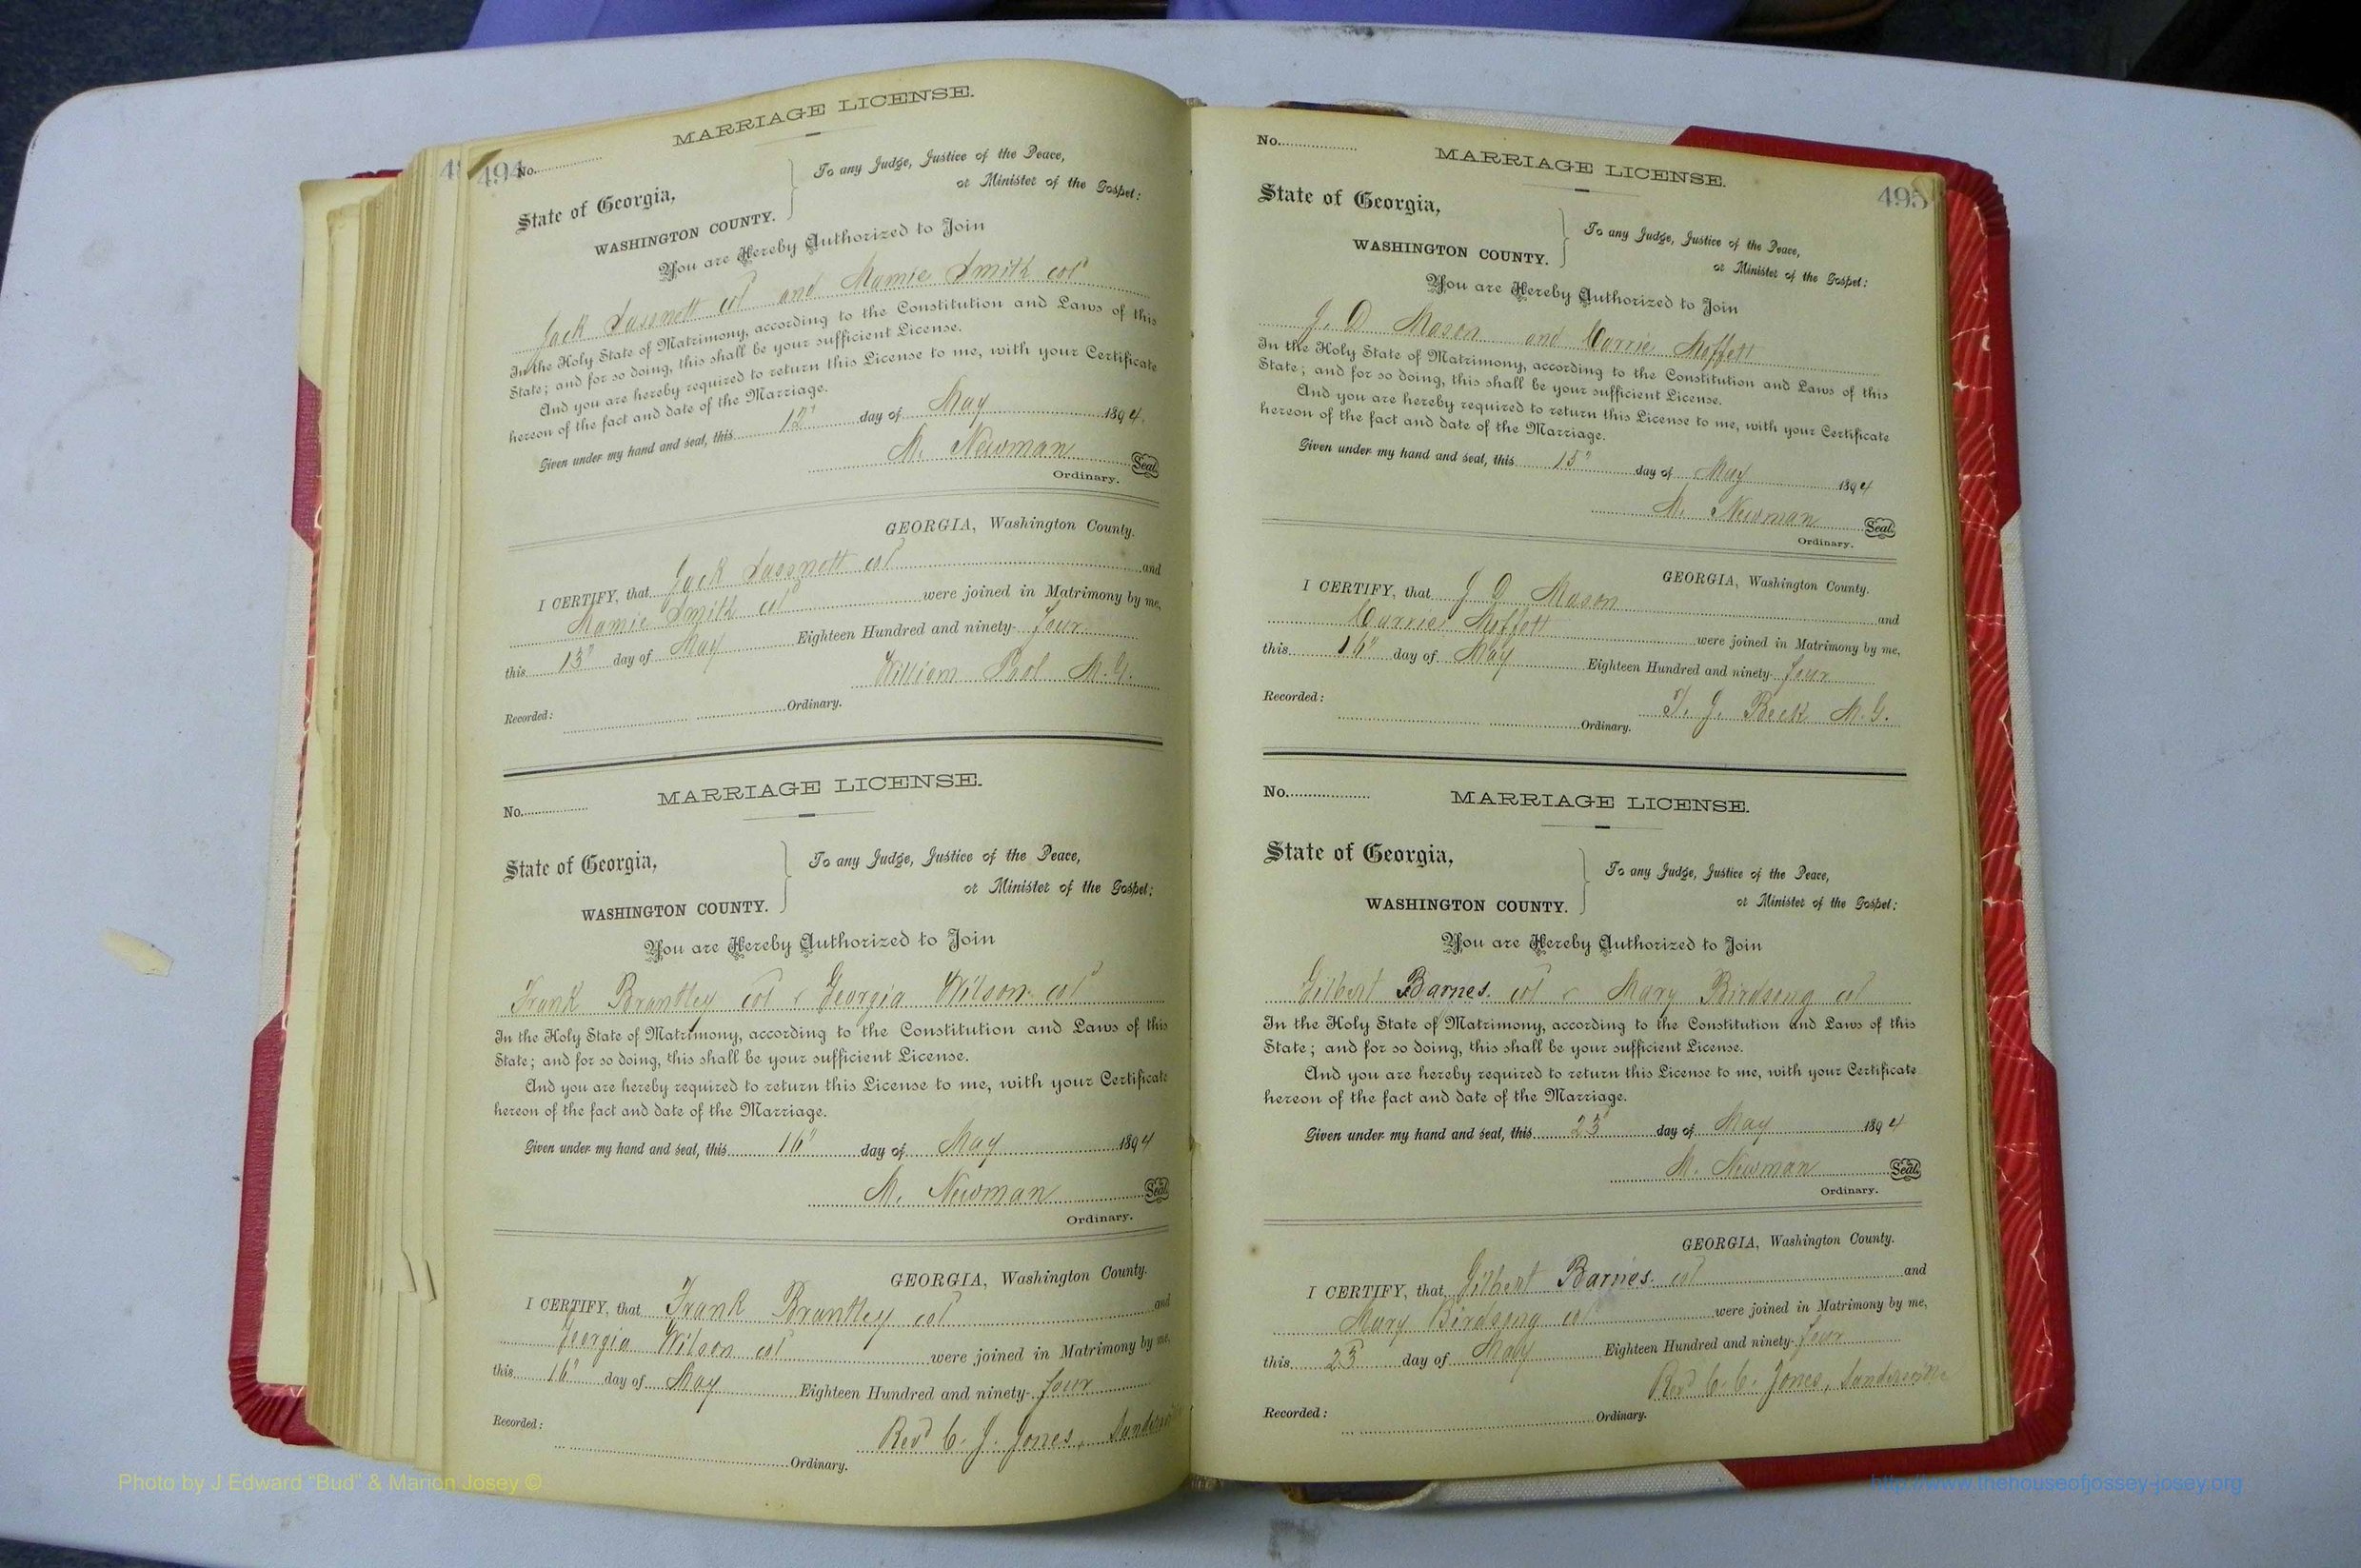 494
No.
MARRIAGE LICENSE.
State of Georgia,
WASHINGTON COUNTY.
To any Judge, Justice of the Peace,
or Minister of the Gospel:
You are Hereby Authorized to Join
Jack col and Mamie Smith col
In the Holy State of Matrimony, according to the Constitution and Laws of this
State; and for so doing, this shall be your sufficient License.
And you are hereby required to return this License to me, with your Certificate
hereon of the fact and date of the Marriage.
Given under my hand and seal, this 12" day of May 1894.
M. Newman Seal
Ordinary.
GEORGIA, Washington County.
I CERTIFY, that Jack col and
Mamie Smith col were joined in Matrimony by me,
this 13" day of May Eighteen Hundred and ninety- four
William Pool M.G.
Recorded:
Ordinary.
No.
MARRIAGE LICENSE.
State of Georgia,
WASHINGTON COUNTY.
To any Judge, Justice of the Peace,
or Minister of the Gospel:
You are Hereby Authorized to Join
Frank Brantley col & Georgia Wilson col
In the Holy State of Matrimony, according to the Constitution and Laws of this
State; and for so doing, this shall be your sufficient License.
And you are hereby required to return this License to me, with your Certificate
hereon of the fact and date of the Marriage.
Given under my hand and seal, this 16" day of May 1894
M. Newman Seal
Ordinary.
GEORGIA, Washington County.
I CERTIFY, that Frank Brantley col and
Georgia Wilson col were joined in Matrimony by me,
this 16" day of May Eighteen Hundred and ninety- four
Revd C. J. Jones,
Recorded:
Ordinary.
No.
MARRIAGE LICENSE.
495
State of Georgia,
WASHINGTON COUNTY.
To any Judge, Justice of the Peace,
or Minister of the Gospel:
You are Hereby Authorized to Join
J. D Mason and Carrie Moffett
In the Holy State of Matrimony, according to the Constitution and Laws of this
State; and for so doing, this shall be your sufficient License.
And you are hereby required to return this License to me, with your Certificate
hereon of the fact and date of the Marriage.
Given under my hand and seal, this 15" day of May 1894
M. Newman Seal
Ordinary.
GEORGIA, Washington County.
I CERTIFY, that J D Mason and
Carrie Moffett were joined in Matrimony by me,
this 16" day of May Eighteen Hundred and ninety- four
T. J. Beck M.G.
Recorded:
Ordinary.
No.
MARRIAGE LICENSE.
State of Georgia,
WASHINGTON COUNTY.
To any Judge, Justice of the Peace,
or Minister of the Gospel:
You are Hereby Authorized to Join
Gilbert Barnes. col & Mary Birdsong col
In the Holy State of Matrimony, according to the Constitution and Laws of this
State; and for so doing, this shall be your sufficient License.
And you are hereby required to return this License to me, with your Certificate
hereon of the fact and date of the Marriage.
Given under my hand and seal, this 23" day of May 1894
M. Newman Seal
Ordinary.
GEORGIA, Washington County.
I CERTIFY, that Gilbert Barnes. col and
Mary Birdsong col were joined in Matrimony by me,
this 23 day of May Eighteen Hundred and ninety- four
Revd C. C. Jones, Sandersville
Recorded:
Ordinary.
Photo by J Edward "Bud" & Marion Josey ©
http://www.thehouseofjossey-josey.org